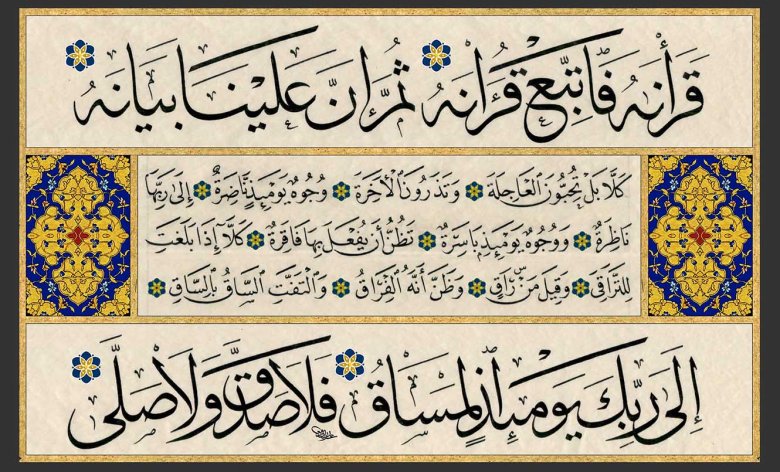 قَرَأْنَاهُ فَاتَّبِعْ قُرْآنَهُ ثُمَّ إِنَّ عَلَيْنَا بَيَانَهُ
كَلَّا بَلْ تُحِبُّونَ الْعَاجِلَةَ وَتَذَرُونَ الْآخِرَةَ وُجُوهٌ يَوْمَئِذٍ نَّاضِرَةٌ إِلَىٰ رَبِّهَا
نَاظِرَةٌ وَوُجُوهٌ يَوْمَئِذٍ بَاسِرَةٌ تَظُنُّ أَن يُفْعَلَ بِهَا فَاقِرَةٌ كَلَّا إِذَا بَلَغَتِ
التَّرَاقِيَ وَقِيلَ مَنْ رَاقٍ وَظَنَّ أَنَّهُ الْفِرَاقُ وَالْتَفَّتِ السَّاقُ بِالسَّاقِ
إِلَىٰ رَبِّكَ يَوْمَئِذٍ الْمَسَاقُ فَلَا صَدَّقَ وَلَا صَلَّىٰ